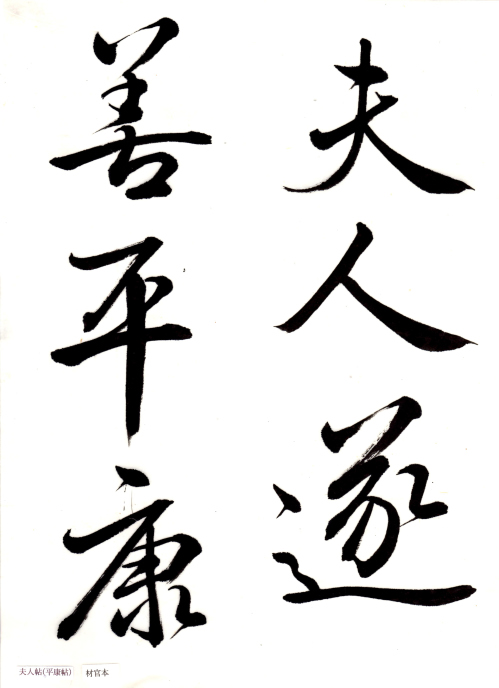 夫人遂
善平康
夫人帖(平康帖) 材官本